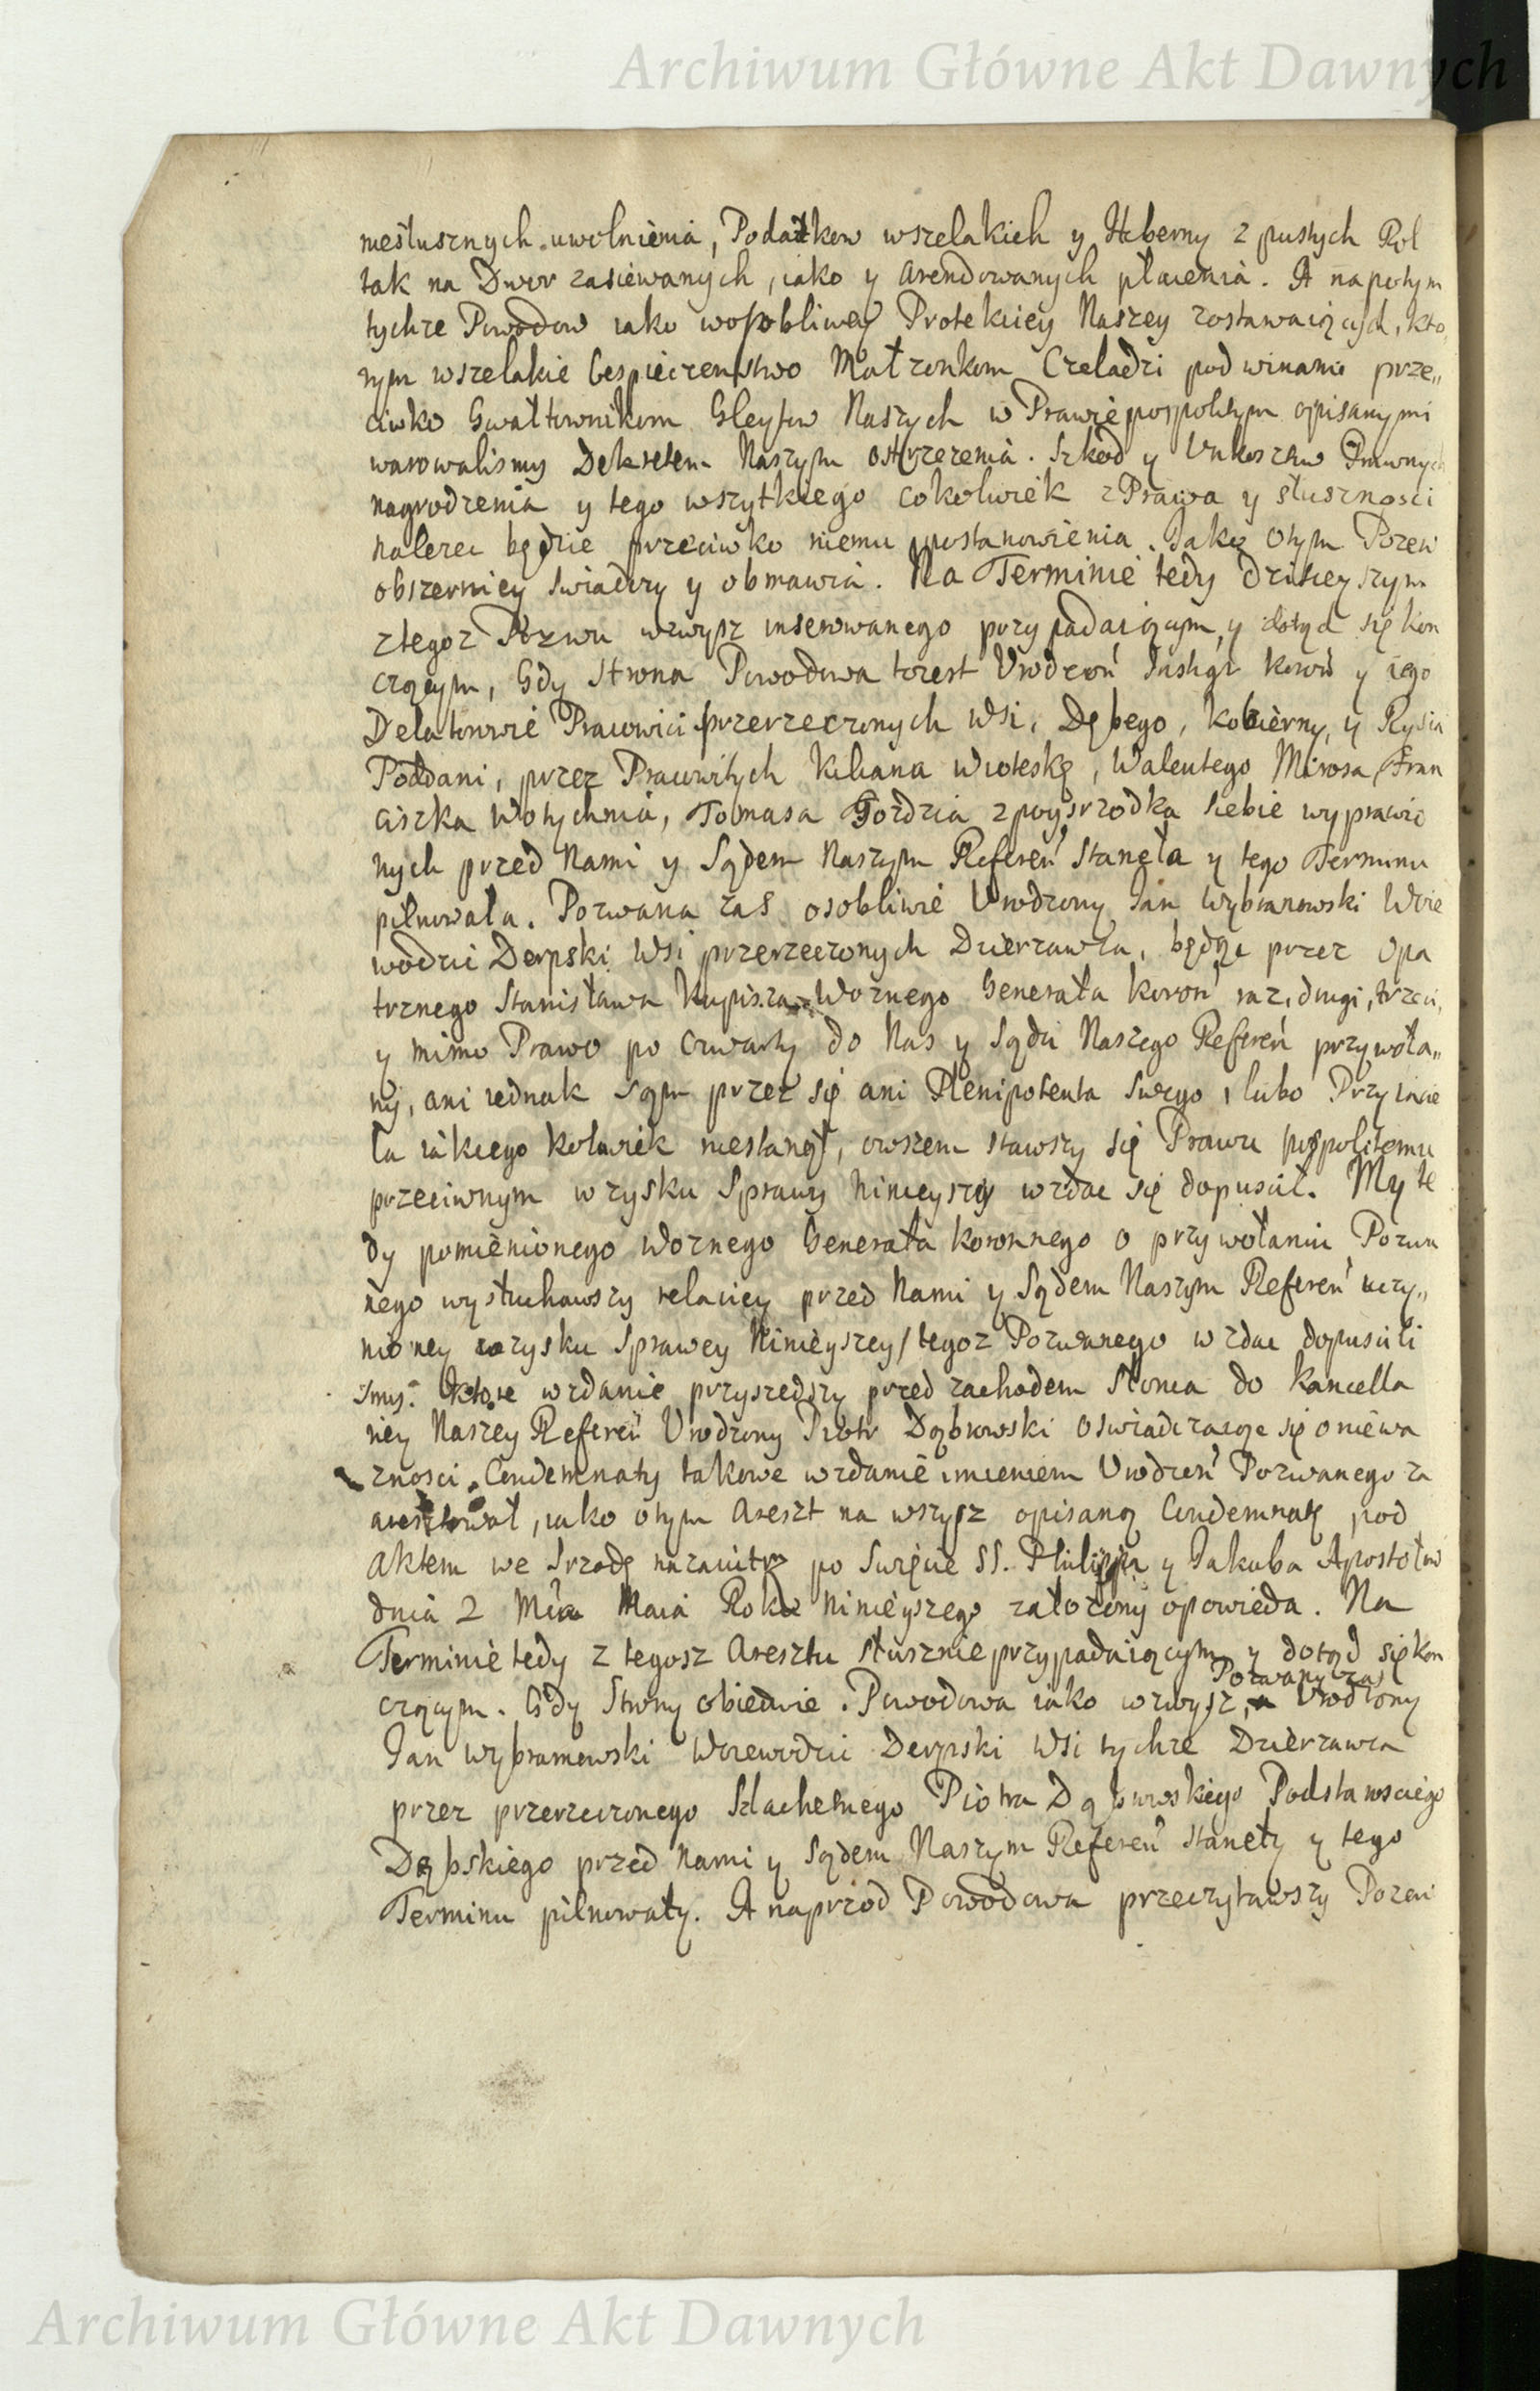 Archiwum Główne Akt Dawnych
niesłusznych uwolnienia, Podatkow wszelakich y Hiberny z pustych Rol
tak na Dwor zasiewanych, iako y arendowanych płacenia. A napotym
tychze Powodow iako wosobliwey Protekciey Naszey zostawaiących, kto,
rym wszelakie bespieczenstwo Małzonkom Czeladzi pod winami prze„
ciwko Gwałtownikom Gleytow Naszych w Prawie pospolitym opisanymi
warowalismy Dekretem Naszym ostrzezenia. Szkod y Prawnych
nagrodzenia y tego wszytkiego cokolwiek z Prawa y słusznosci
nalezec będzie przeciwko niemu postanowienia. Iako otym Pozew
obszerniey swiadczy y obmawia. Na Terminie tedy dzisieyszym
ztegoz Pozwu wzwysz inserowanego przypadaiącym, y dotąd się kon
czącym, Gdy Strona Powodowa toiest Urodzoń Instigr Koroń y iego
Delatorowie Pracowici przerzeczonych Wsi, Dębego, Kobierny, y Rysia
Poddani, przez Pracowitych Kiliana Wioteskę, Walentego Mirosa, Fran
ciszka Wotychnia, Tomasa Gozdzia zpoysrzodka siebie wyprawio
nych przed Nami y Sądem Naszym Refereń Stanęła y tego Terminu
pilnowała. Pozwana zas osobliwie Urodzony Jan Wybranowski Woie
wodzic Derpski Wsi przerzeczonych Dzierzawca, będąc przez Opa
trznego Stanisława Kupisza Woznego Generała Koroń raz, drugi, trzeci,
y mimo Prawo po czwarty do Nas y Sądu Naszego Refereń przywoła„
ny, ani iednak sąm przez się ani Plenipotenta swego, lubo Przyiacie
la iakiego kolwiek niestanął, owszem stawszy się Prawu pospolitemu
przeciwnym w zysku Sprawy Ninieyszey wzdac się dopuscił. My te
dy pomienionego Woznego Generała Koronnego o przywołaniu Pozwa
nego wysłuchawszy relaciey przed Nami y Sądem Naszym Refereń uczy„
nioney w zysku Sprawey Ninieyszey tegoz Pozwanego wzdac dopuscili
smy. Ktore wzdanie przyszedszy przed zachodem Słonca do Kancella
riey Naszey Refereń Urodzony Piotr Dąbrowski oswiadczaiąc się o niewa
znosci Condemnaty takowe wzdanie imieniem Urodzeń Pozwanego za
aresztował, iako otym Areszt na wszysz opisaną Condemnatę pod
aktem we Srzodę nazaiutrz po Swięcie SS. Philippa y Iakuba Apostołow
dnia 2 Mca Maia Roku Ninieyszego załozony opowieda. Na
Terminie tedy z tegosz Aresztu słusznie przypadaiącym y dotąd się kon
czącym. Gdy Strony obiedwie. Powodowa iako wzwysz, Pozwany zas Urodzony
Jan Wybranowski Woiewodzic Derpski Wsi tychze Dzierzawca
przez przerzeczonego Szlachetnego Piotra Dąbrowskiego Podstarosciego
Dąbskiego przed Nami y Sądem Naszym Refereń stanęły y tego
Terminu pilnowały. A naprzod Powodowa przeczytawszy Pozew
Archiwum Główne Akt Dawnych